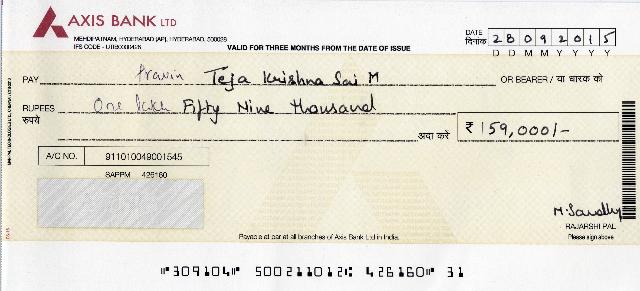 AXIS BANK LTD
MEHDIPATNAM, HYDERABAD (AP), HYDERABAD, 500028
IFS CODE - UTIB0000426
VALID FOR THREE MONTHS FROM THE DATE OF ISSUE
DATE
दिनांक 28092015
D D M M Y Y Y Y
PAY Pravin Teja Krishna Sai M OR BEARER / या धारक को
RUPEES One lakh Fifty Nine thousand
रुपये
अदा करे ₹ 159,000/-
A/C NO. 911010049001545
SAPPM 426160
M. Sandhy
RAJARSHI PAL
Please sign above
Payable at par at all branches of Axis Bank Ltd in India.
⑈309104⑈ 500211012⑆ 426160⑈ 31